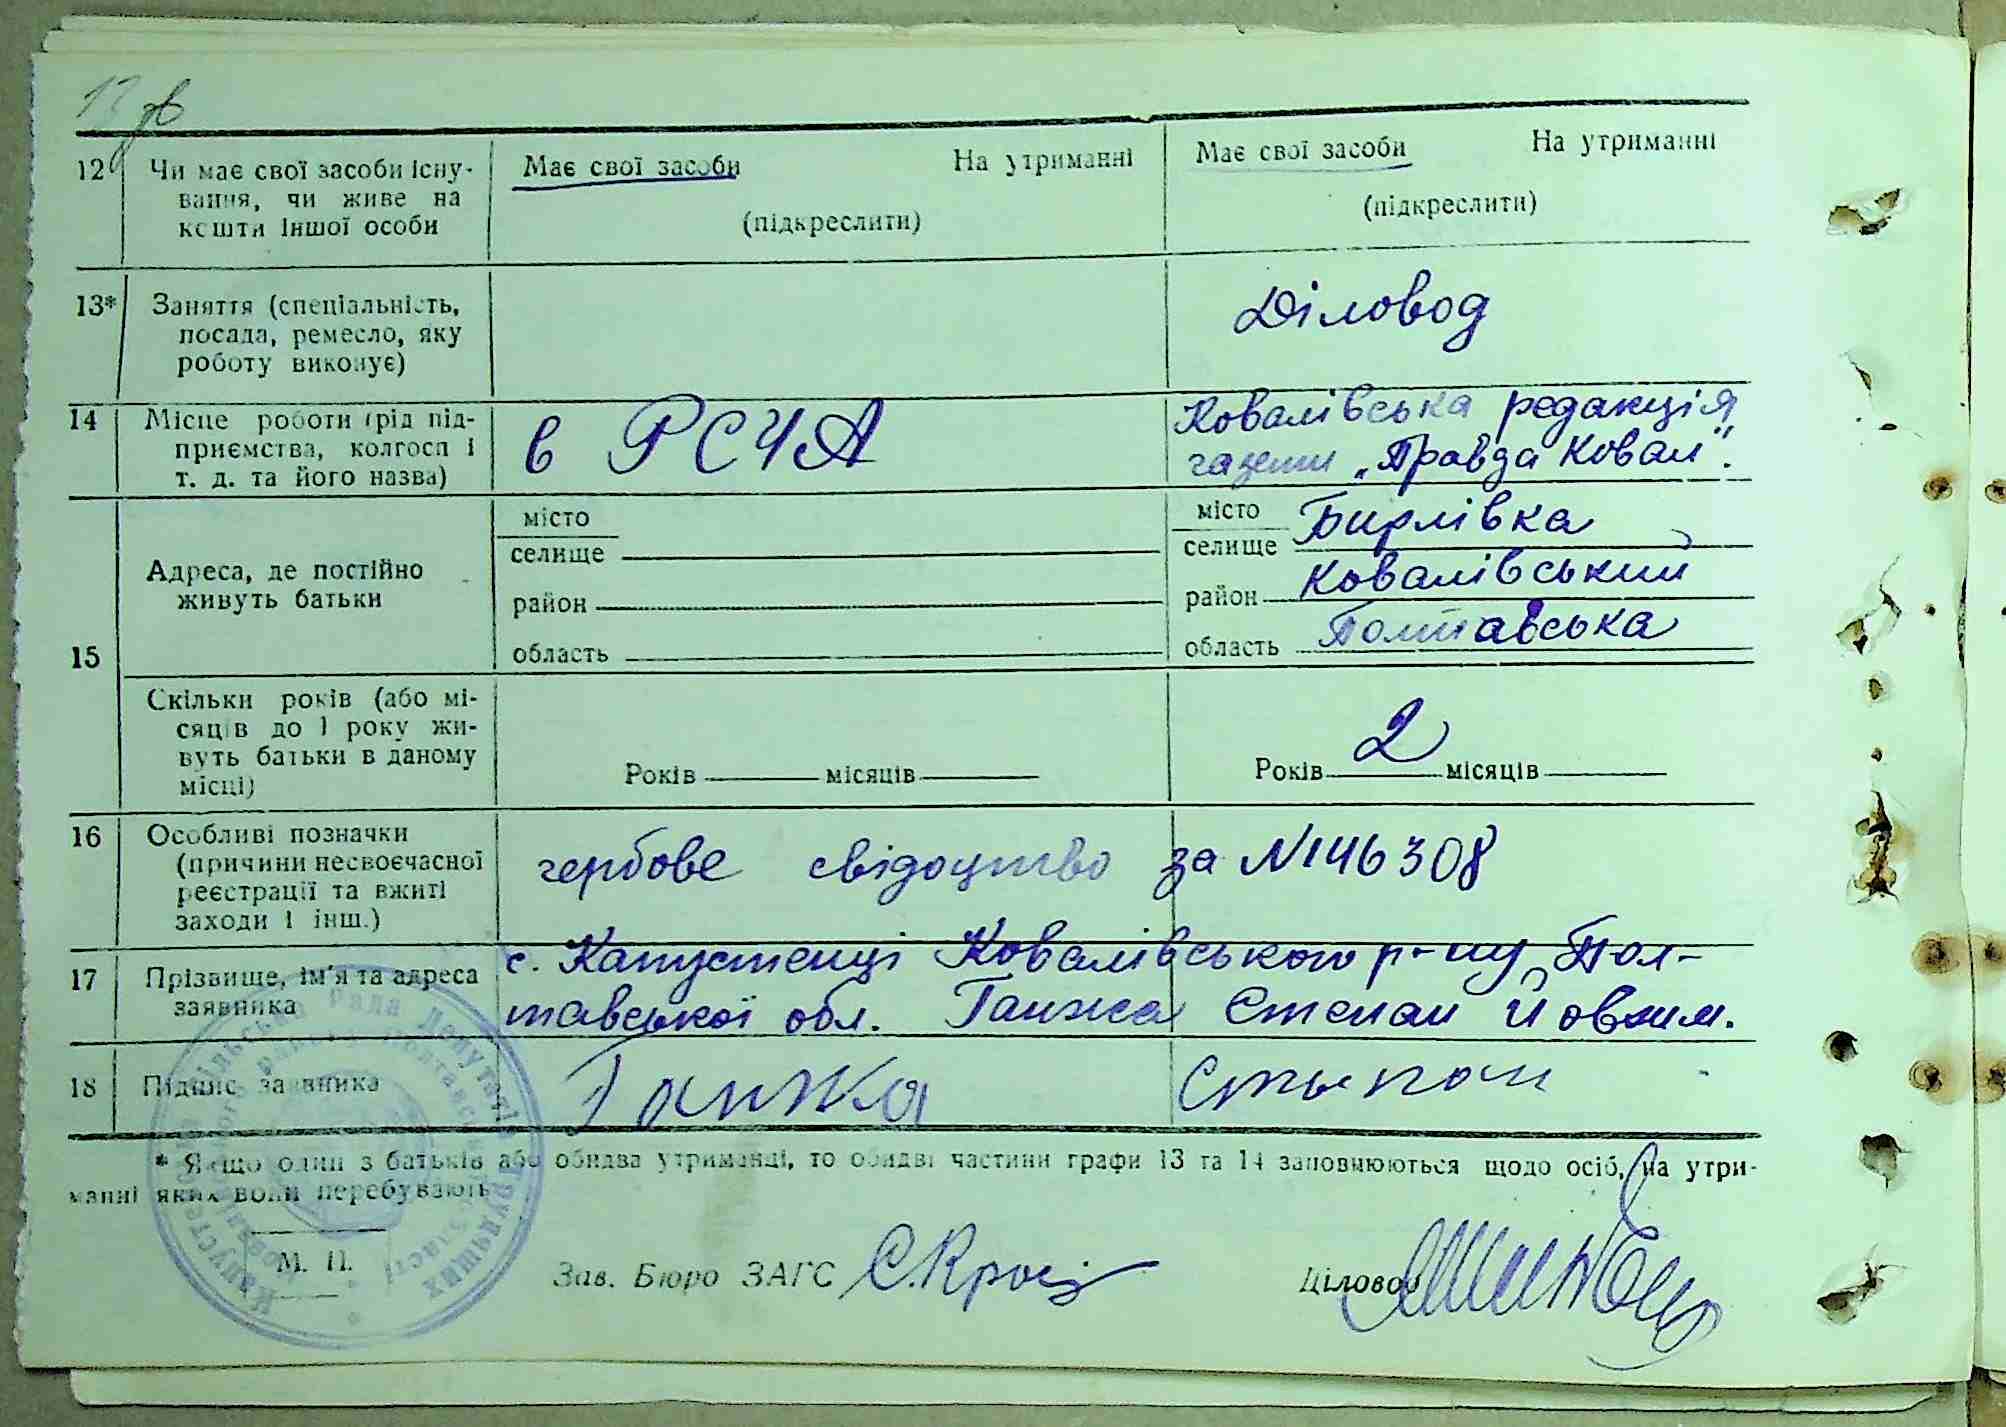 12 Чи має свої засоби існу- Має свої засоби На утриманні Має свої засоби На утриманні
вання, чи живе на
кошти іншої особи (підкреслити) (підкреслити)
13* Заняття (спеціальність, Діловод
посада, ремесло, яку
роботу виконує)
14 Місце роботи (рід під- в РСЧА Ковалівська редакція
приємства, колгосп і газети „Правда Ковал".
т. д. та його назва)
15 Адреса, де постійно
живуть батьки
місто
селище
район
область
місто Бирлівка
селище
район Ковалівський
область Полтавська
Скільки років (або мі-
сяців до 1 року жи-
вуть батьки в даному
місці)
Років місяців Років 2 місяців
16 Особливі позначки гербове свідоцтво за №146308
(причини несвоєчасної
реєстрації та вжиті
заходи і інш.)
17 Прізвище, ім'я та адреса с. Капустенці Ковалівського р-ну Пол-
заявника тавської обл. Ганжа Степан Йовхим.
18 Підпис заявника Ганжа Стыпан
* Якщо один з батьків або обидва утриманці, то обидві частини графи 13 та 14 заповнюються щодо осіб, на утри-
манні яких вони перебувають
М. П.
Зав. Бюро ЗАГС Діловод